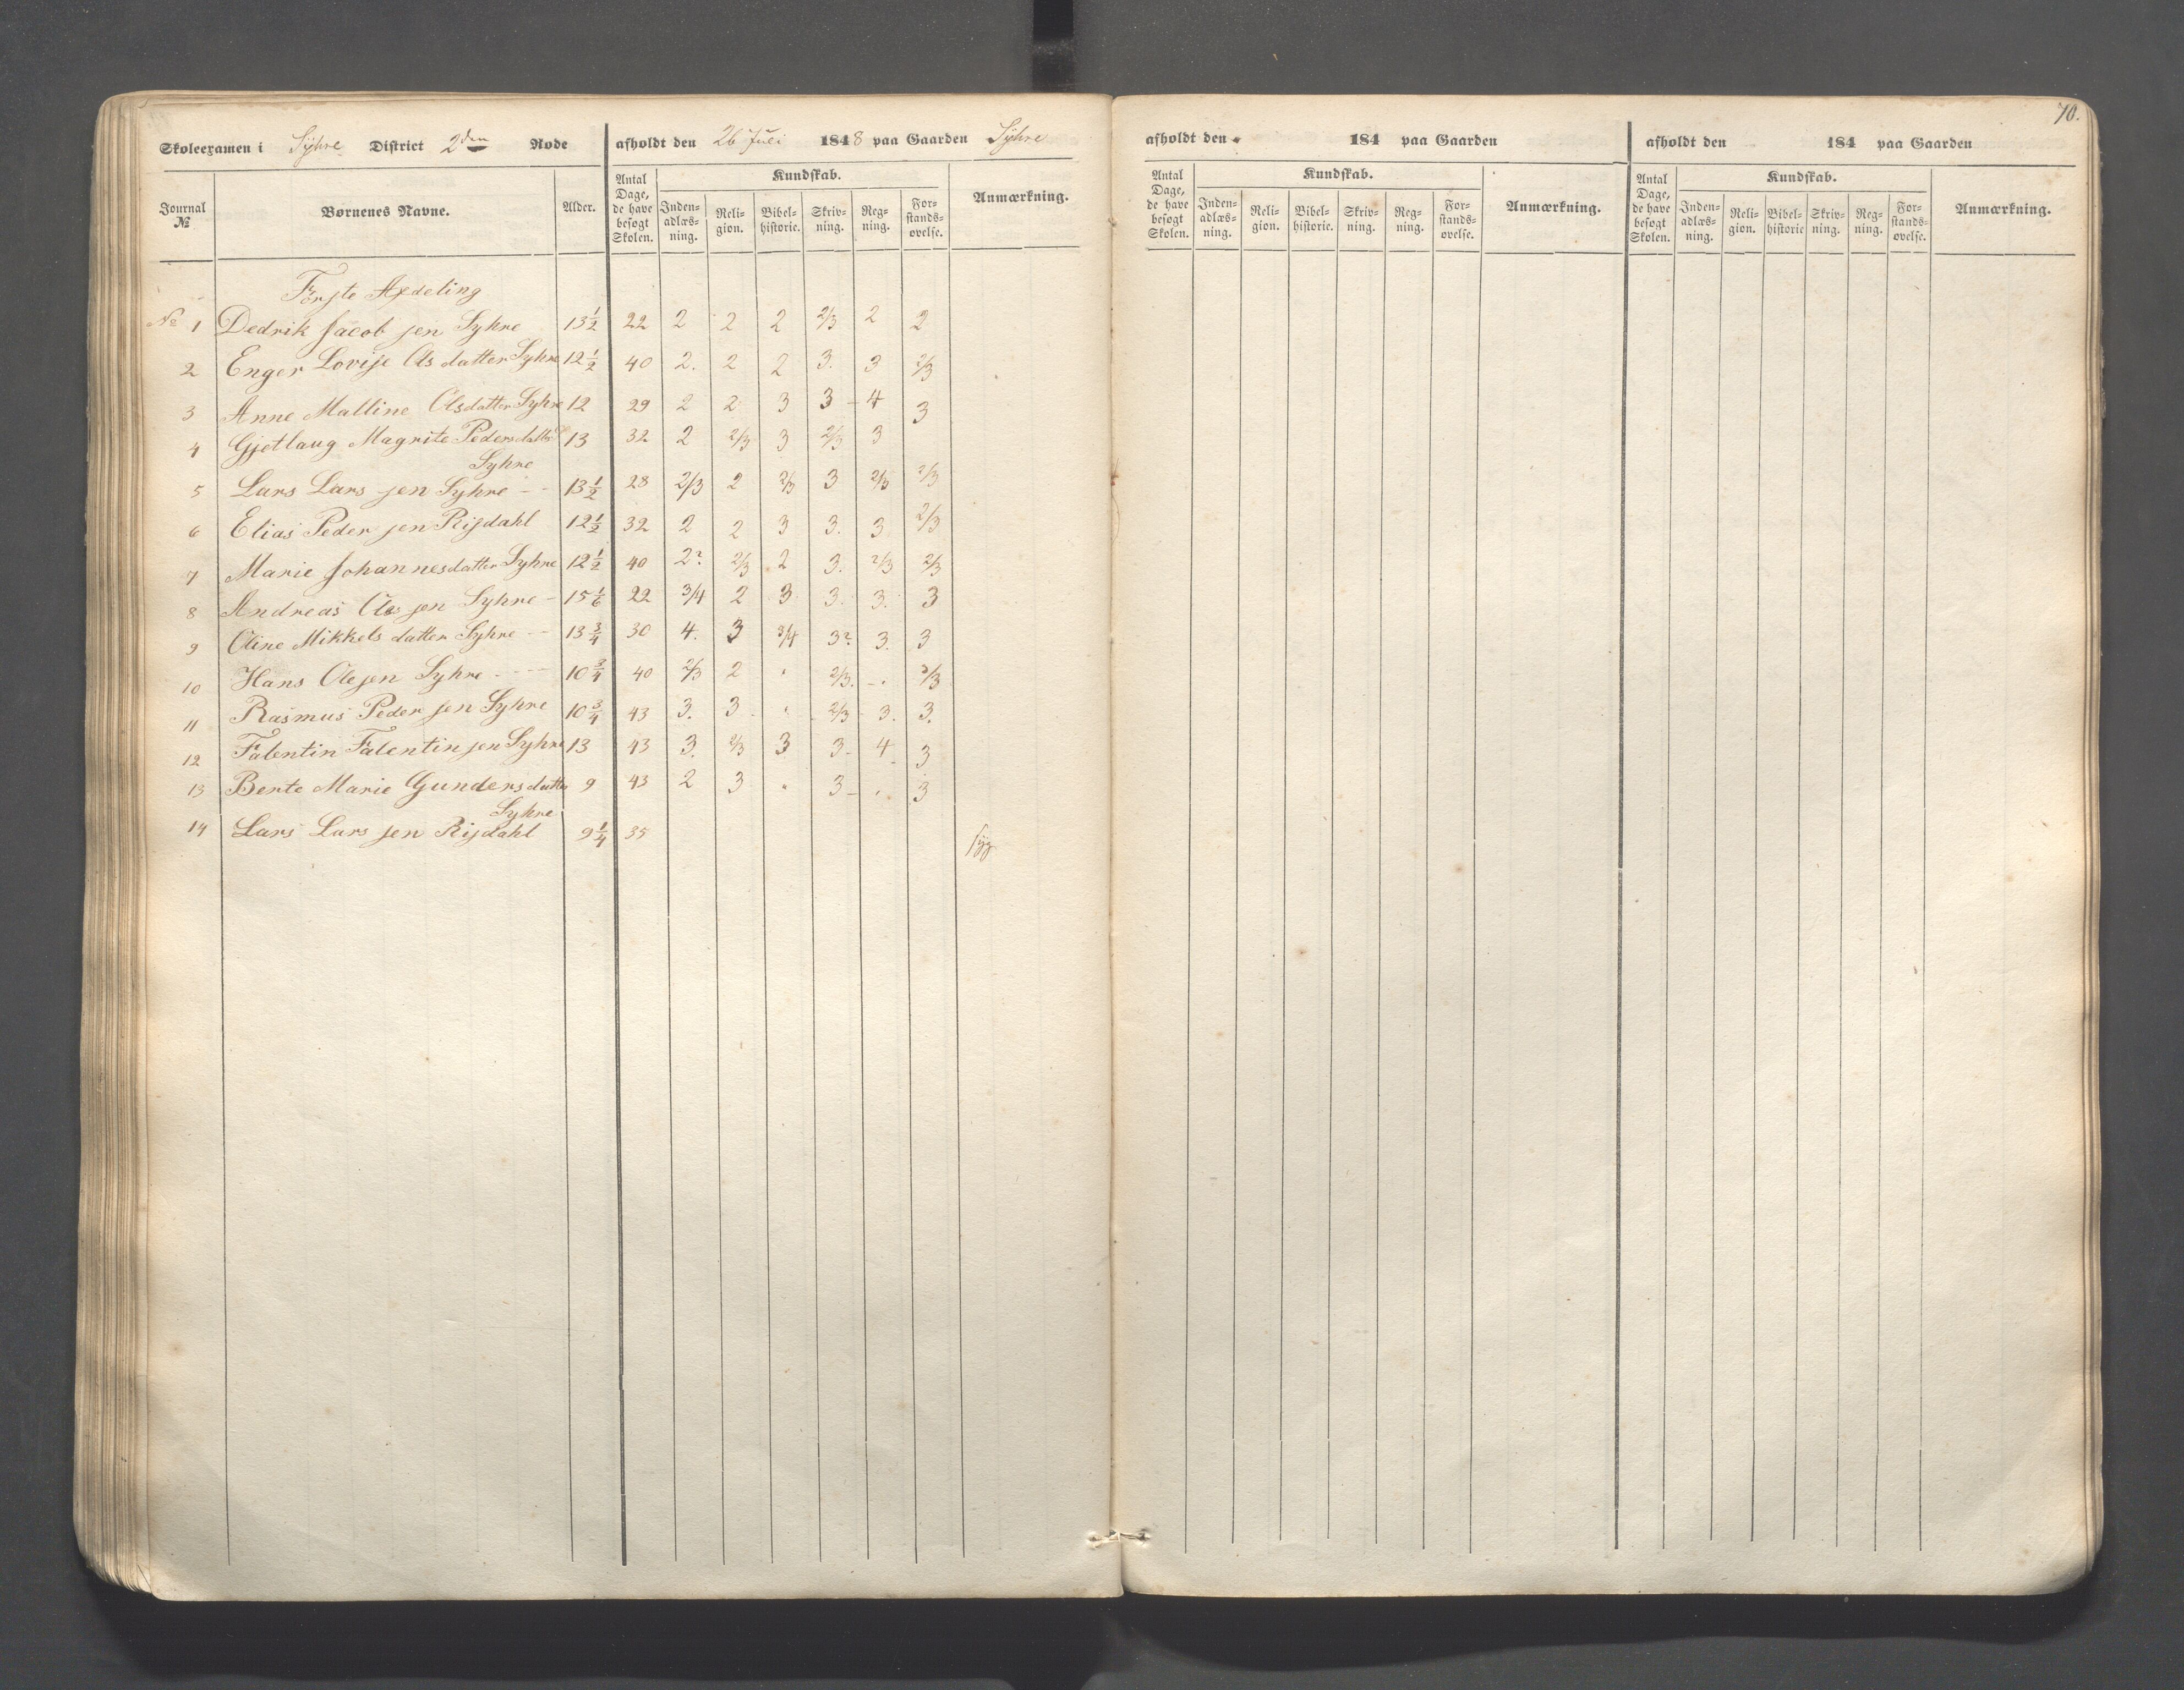 70.
Skoleexamen i Syhre District 2den Rode afholdt den 26 Juli 1848 paa Gaarden Syhre
Journal № Børnenes Navne. Alder. Antal Dage, de have besøgt Skolen. Kundskab. Inden- adlæs- ning. Reli- gion. Bibel- historie. Skriv- ning. Reg- ning. For- stands- øvelse. Anmærkning.
Første Afdeling
№ 1 Dedrik Jacobsen Syhre 13½ 22 2 2 2 2/3 2 2
2 Enger Lovise Olsdatter Syhre 12½ 40 2. 2 2 3. 3 2/3
3 Anne Malline Olsdatter Syhre 12 29 2 2 3 3 – 4 3
4 Gjetlaug Magrite Pedersdatter 13 32 2 2/3 3 2/3 3
Syhre
5 Lars Larssen Syhre - - 13½ 28 2/3 2 2/3 3 2/3 2/3
6 Elias Pedersen Risdahl 12½ 32 2 2 3 3. 3 2/3
7 Marie Johannesdatter Syhre 12½ 40 2? 2/3 2 3. 2/3 2/3
8 Andreas Olssen Syhre - 15 1/6 22 3/4 2 3 3. 3. 3
9 Oline Mikkelsdatter Syhre - - 13¾ 30 4. 3 3/4 3? 3. 3
10 Hans Olesen Syhre - - - 10¾ 40 2/3 2 " 2/3. - " 2/3
11 Rasmus Pedersen Syhre 10¾ 43 3. 3 " 2/3 3. 3.
12 Falentin Falentinsen Syhre 13 43 3. 2/3 3 3 - 4 3
13 Berte Marie Gundersdatter 9 43 2 3 " 3 - " 3
Syhre
14 Lars Larssen Risdahl 9¼ 35 syg
afholdt den 184 paa Gaarden
Antal Dage, de have besøgt Skolen. Kundskab. Inden- adlæs- ning. Reli- gion. Bibel- historie. Skriv- ning. Reg- ning. For- stands- øvelse. Anmærkning.
afholdt den 184 paa Gaarden
Antal Dage, de have besøgt Skolen. Kundskab. Inden- adlæs- ning. Reli- gion. Bibel- historie Skriv- ning. Reg- ning. For- stands- øvelse. Anmærkning.